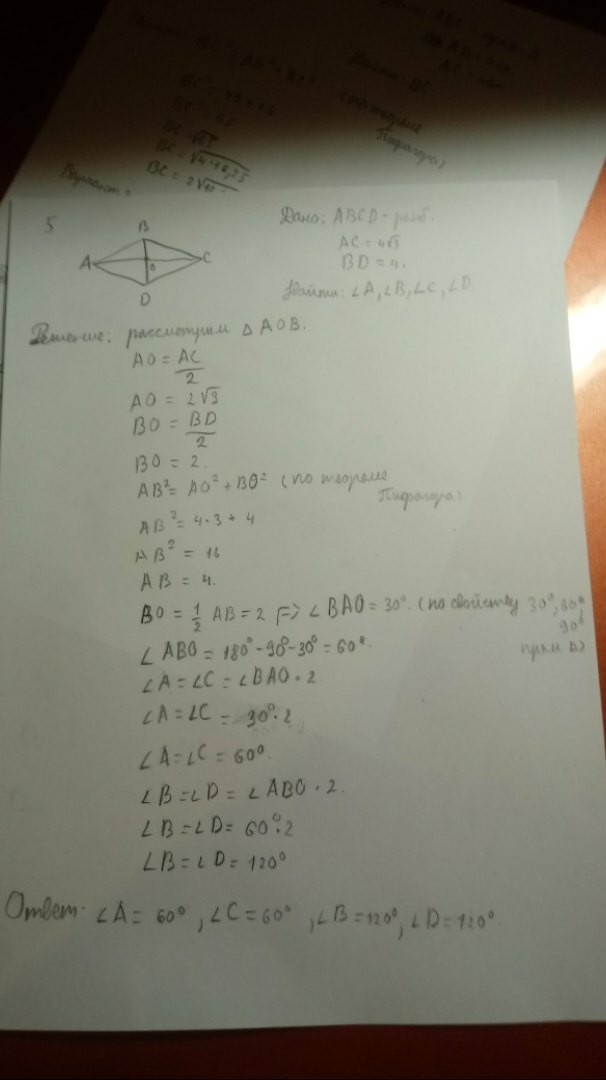 BC = √65
BC = √4·16,25
(по теореме
Пифагора)
Вариант
5.
B
A
C
D
Дано: ABCD - ромб.
AC = 4√3
BD = 4.
Найти: ∠A, ∠B, ∠C, ∠D.
Решение: рассмотрим △ AOB.
AO = AC/2
AO = 2√3
BO = BD/2
BO = 2.
AB² = AO² + BO² (по теореме
Пифагора)
AB² = 4·3 + 4
AB² = 16
AB = 4.
BO = 1/2 AB = 2 => ∠BAO = 30°. (по свойству 30°, 60°
90°
△)
∠ABO = 180° - 90° - 30° = 60°.
∠A = ∠C = ∠BAO · 2
∠A = ∠C = 30° · 2
∠A = ∠C = 60°.
∠B = ∠D = ∠ABO · 2.
∠B = ∠D = 60° · 2
∠B = ∠D = 120°
Ответ: ∠A = 60°, ∠C = 60°, ∠B = 120°, ∠D = 120°